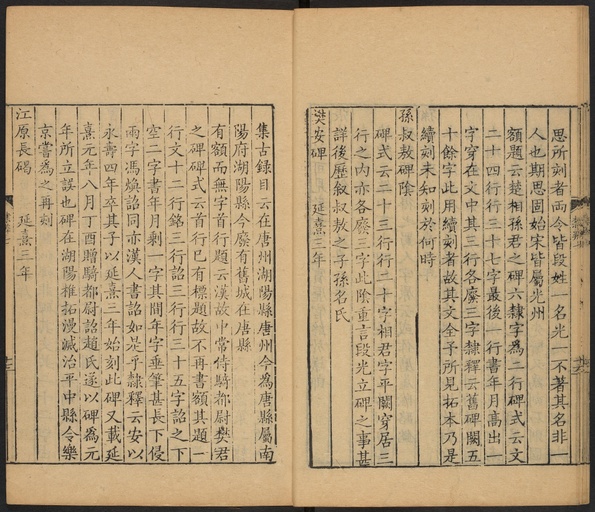 思所刻者而今皆段姓一名光一不著其名非一
人也期思固始宋皆屬光州
額題云楚相孫君之碑六隸字為二行碑式云文
二十四行行三十七字最後一行書年月高出一
字穿在文中其三行各廢三字隸釋云舊碑闕五
十餘字此用續刻者故其文全予所見拓本乃是
續刻未知刻於何時
孫叔敖碑陰
碑式云二十三行行二十字相君字平闕穿居三
行之內亦各廢三字此陰重言段光立碑之事甚
詳後歷敘叔敖之子孫名氏
樊安碑 延熹三年
集古錄目云在唐州湖陽縣唐州今為唐縣屬南
陽府湖陽縣今廢有舊城在唐縣
有額而無字首行題云漢故中常侍騎都尉樊君
之碑碑式云首行已有標題故不再書額其題一
行文十二行銘三行詔三行行三十五字詔之下
空二字書年月剩一字其間年字垂筆甚長下侵
兩字馮煥詔同亦漢人書詔如是乎隸釋云安以
永壽四年卒其子以延熹三年始刻此碑又載延
熹元年八月丁酉贈騎都尉詔趙氏遂以碑為元
年所立誤也碑在湖陽椎拓漫滅治平中縣令樂
京嘗為之再刻
江原長碣 延熹三年